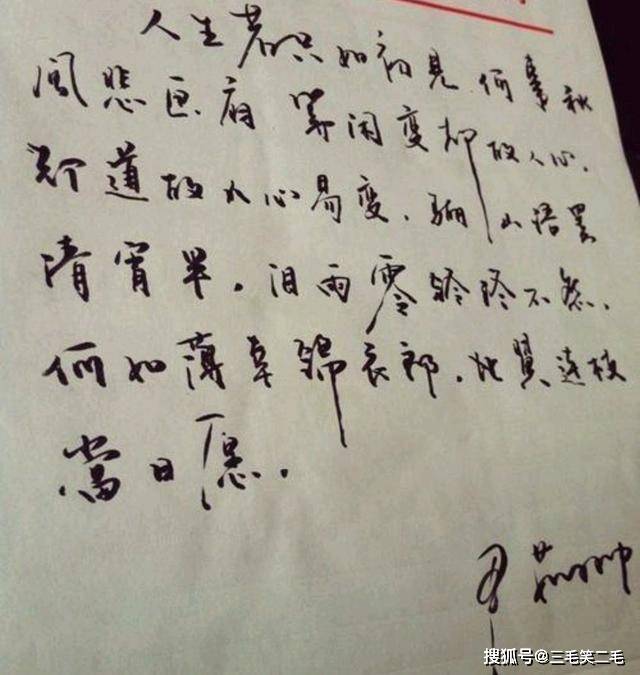 人生若只如初見 何事秋
风悲画扇 等闲变却故人心.
却道故人心易变. 骊山语罢
清宵半. 泪雨零铃终不怨.
何如薄幸锦衣郎. 比翼连枝
當日愿.
搜狐号@三毛笑二毛